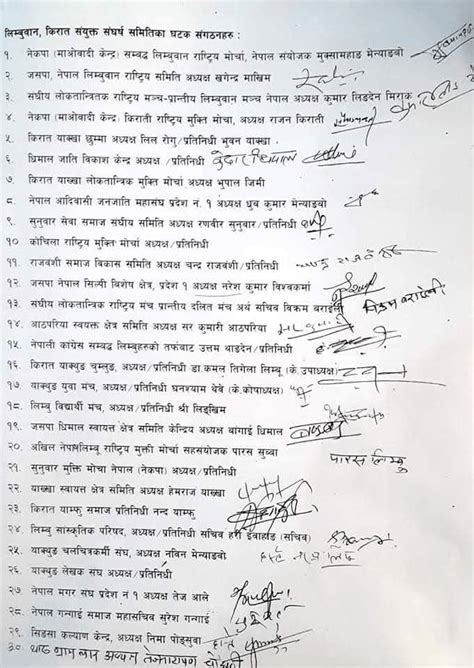 लिम्बुवान, किरात संयुक्त संघर्ष समितिका घटक संगठनहरु :
१. नेकपा (माओवादी केन्द्र) सम्वद्ध लिम्बुवान राष्ट्रिय मोर्चा, नेपाल संयोजक मुक्सामहाङ मेन्याङबो
२. जसपा, नेपाल लिम्बुवान राष्ट्रिय समिति अध्यक्ष खगेन्द्र माखिम
३. संघीय लोकतान्त्रितक राष्ट्रिय मञ्च-प्रान्तीय लिम्बुवान मञ्च नेपाल अध्यक्ष कुमार लिङदेन मिराक
४. नेकपा (माओवादी केन्द्र) किराती राष्ट्रिय मुक्ति मोर्चा, अध्यक्ष राजन किराती
५. किरात याक्खा छुम्मा अध्यक्ष लिल रोगु/प्रतिनिधी भुवन याक्खा
६. धिमाल जाति विकास केन्द्र अध्यक्ष /प्रतिनिधी
७. किरात याख्खा लोकतान्त्रिक मुक्ति मोर्चा अध्यक्ष भुपाल जिमी
८. नेपाल आदिवासी जनजाति महासंघ प्रदेश नं. १ अध्यक्ष ध्रुब कुमार मेन्याङबो
९. सुनुवार सेवा समाज संघीय समिति अध्यक्ष रणवीर सुनुवार/प्रतिनिधी
१० कोचिला राष्ट्रिय मुक्ति मोर्चा अध्यक्ष/प्रतिनिधी
११ राजवंशी समाज विकास समिति अध्यक्ष चन्द्र राजवंशी/प्रतिनिधी
१२. जसपा नेपाल सिल्पी विशेष क्षेत्र, प्रदेश १ अध्यक्ष नरेश कुमार विश्वकर्मा
१३. संघीय लोकतान्त्रिक राष्ट्रिय मंच प्रान्तीय दलित मंच अर्थ सचिव विक्रम बराईली विक्रम बराईली
१४. आठपरिया स्वयक्त क्षेत्र समिति अध्यक्ष सर कुमारी आठपरिया
१५. नेपाली कांग्रेस सम्वद्ध लिम्बुहरुको तर्फबाट उत्तम थाङदेन/प्रतिनिधी
१६. किरात याक्थुङ चुम्लुङ, अध्यक्ष/प्रतिनिधी डा.कमल तिगेला लिम्बू (के.उपाध्यक्ष)
१७. याक्थुङ युवा मंच, अध्यक्ष/प्रतिनिधी घनश्याम थेबे (के.कोषाध्यक्ष)
१८. लिम्बु विद्यार्थी मंच, अध्यक्ष/प्रतिनिधी श्री लिङ्खिम
१९. जसपा धिमाल स्वायत्त क्षेत्र समिति केन्द्रिय अध्यक्ष बांगाई धिमाल
२०. अखिल नेपाललिम्बू राष्ट्रिय मुक्ती मोर्चा सहसंयोजक पारस सुब्बा पारस लिम्बू
२१. सुनुवार मुक्ति मोचा (नेकपा) अध्यक्ष/प्रतिनिधी
२२. याख्खा स्वायत्त क्षेत्र समिति अध्यक्ष हेमराज याख्खा
२३. किरात याम्फु समाज प्रतिनिधी नन्द याम्फु
२४. लिम्बु सास्कृतिक परिषद, अध्यक्ष/प्रतिनिधी सचिव हरी ईवाहाङ (सचिव)
२५. याक्थुङ चलचित्रकर्मी संघ, अध्यक्ष नविन मेन्याङबो
२६. याक्थुङ लेखक संघ अध्यक्ष/प्रतिनिधी
२७. नेपाल मगर संघ प्रदेश नं १ अध्यक्ष तेज आले
२८. नेपाल गन्गाई समाज महासचिव सुरेश गन्गाई
२९. सिडसा कल्याण केन्द्र, अध्यक्ष निमा पोङ्सुवा
३०.